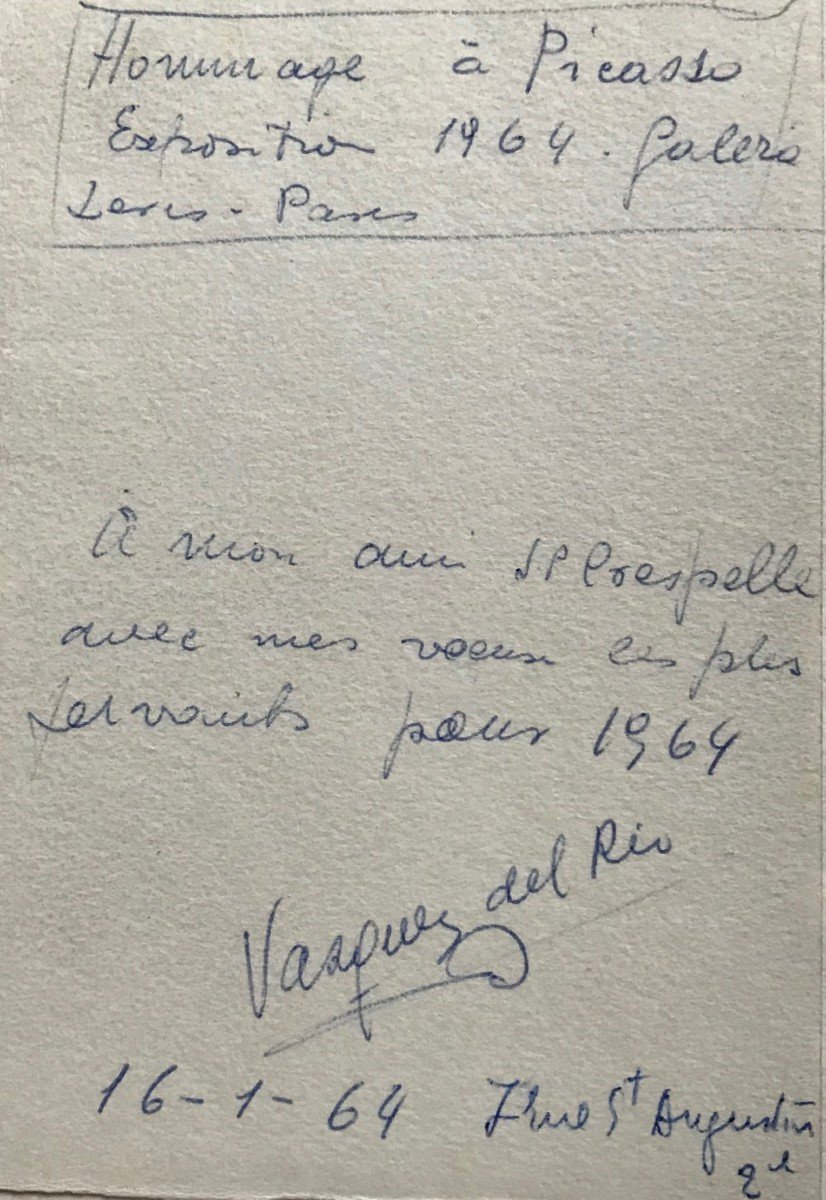 Hommage à Picasso
Exposition 1964. Galerie
Leris - Paris
À mon ami JP Crespelle
avec mes voeux les plus
fervants pour 1964
Vasquez del Rio
16-1-64 7 rue St Augustin
2e